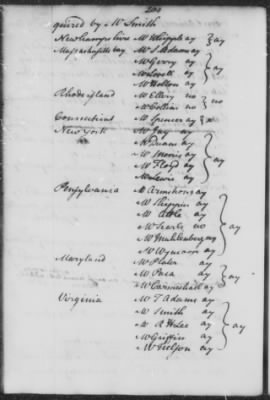 204
quired by Mr Smith
New hampshire Mr Whipple ay } ay
Massachusetts bay Mr S Adams ay
Mr Gerry ay } ay
Mr Lovell ay
Mr Holten ay
Rhode island Mr Ellery no } no
Mr Collins no
Connecticut Mr Spencer ay } x
New York Mr Jay ay
Mr Duane ay
Mr Morris ay } ay
Mr Floyd ay
Mr Lewis ay
Pensylvania Mr Armstrong ay
Mr Shippen ay
Mr Atlee ay
Mr Searle no } ay
Mr Muhlenberg ay
Mr Wynkoop ay
Maryland Mr Plater ay
Mr Paca ay } ay
Mr Carmichael ay
Virginia Mr T Adams ay
Mr Smith ay
Mr R H Lee ay } ay
Mr Griffin ay
Mr Nelson ay